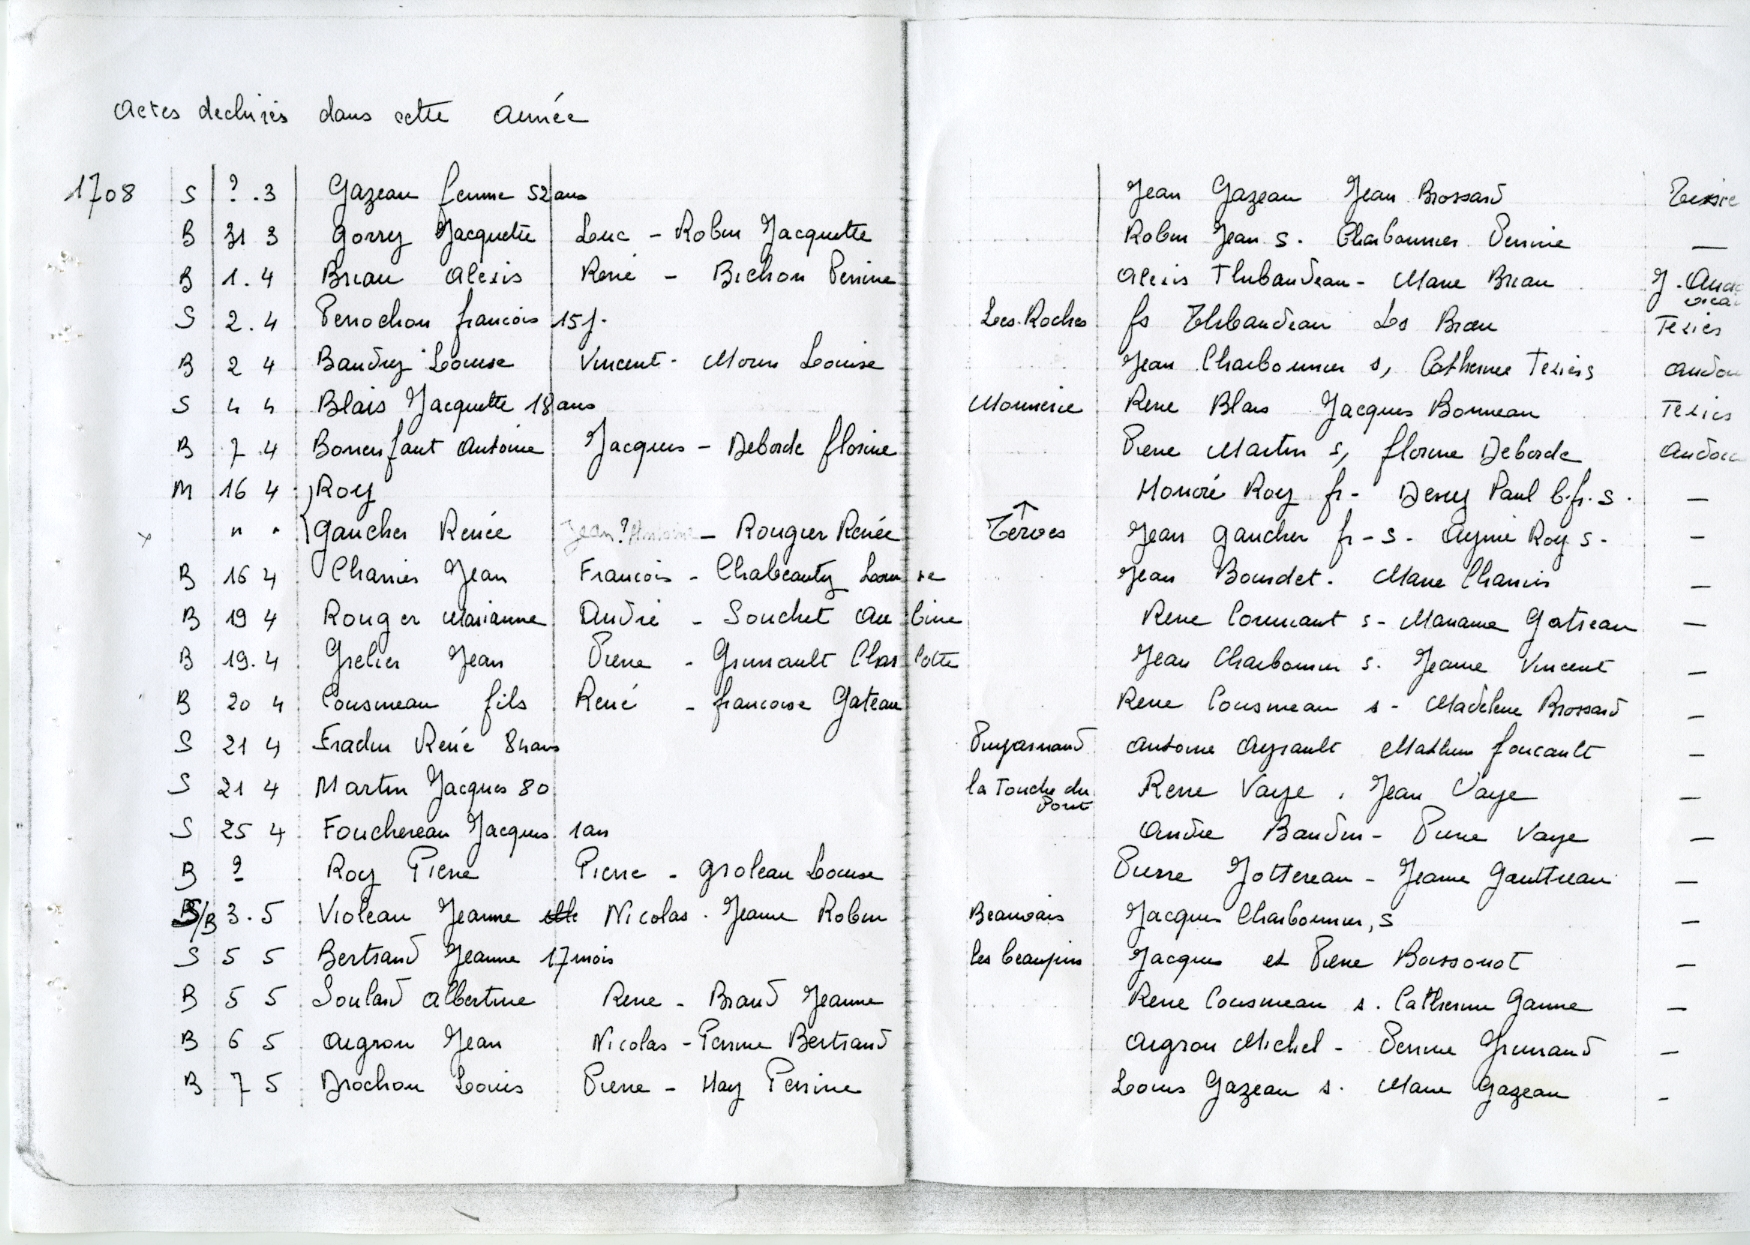 Actes dechirés dans cette année
1708 S ? .3 Gazeau femme 52 ans Jean Gazeau Jean Brossard
B 31 3 Gorry Jacquette Luc - Robin Jacquette Robin Jean s. Charbonnier Perrine —
B 1.4 Briau Alexis René - Bichon Perrine Alexis Thibaudeau - Marie Briau J. Audo
vicai
S 2.4 Perrochon francois 15 j. Les Roches fs Thibaudeau Ls Briau Texies
B 2 4 Baudry Louise Vincent - Morin Louise Jean Charbonnier s, Catherine Texiers Audou
S 4 4 Blais Jacquette 18 ans Monnerie René Blais Jacques Bonneau Texies
B 7.4 Bonenfant Antoine Jacques - Deborde florine Pierre Martin s, florine Deborde Audou
M 16 4 Roy Honoré Roy fr - Paul b.fr. s. —
" " Gaucher Renée Jean? - Rougier Renée Terves Jean Gaucher fr - s - Roy s - —
B 16 4 Charrier Jean Francois - Chabeauty Louise Jean Bourdet. Marie Charrier —
B 19 4 Rouger Marianne André - Souchet Aubine René s - Gatseau —
B 19.4 Grelier Jean Pierre - Grunault Charlotte Jean Charbonnier s. Jeanne Vincent —
B 20 4 Cousineau fils René - francoise Gateau René Cousineau s - Madelene Brossard —
S 21 4 Fradin René ans Puyarnaud Antoine Ayrault Mathieu foucault —
S 21 4 Martin Jacques 80 la Touche du Pont René Vaye . Jean Vaye —
S 25 4 Fouchereau Jacques 1 an André Baudin - Pierre Vaye —
B ? Roy Pierre Pierre - Groleau Louise Pierre Jottereau - Jeanne Gauttreau —
S/B 3.5 Violeau Jeanne Nicolas - Jeanne Robin Beauvais Jacques Charbonnier, s —
S 5 5 Bertrand Jeanne 17 mois les beaupins Jacques et Pierre Boissonot —
B 5 5 Soulard Albertine René - Braud Jeanne René Cousineau s. Catherine Ganne —
B 6 5 Aigron Jean Nicolas - Perrine Bertrand Aigron Michel - Perrine —
B 7 5 Drochon Louis Pierre - Hay Perrine Louis Gazeau s. Marie Gazeau -